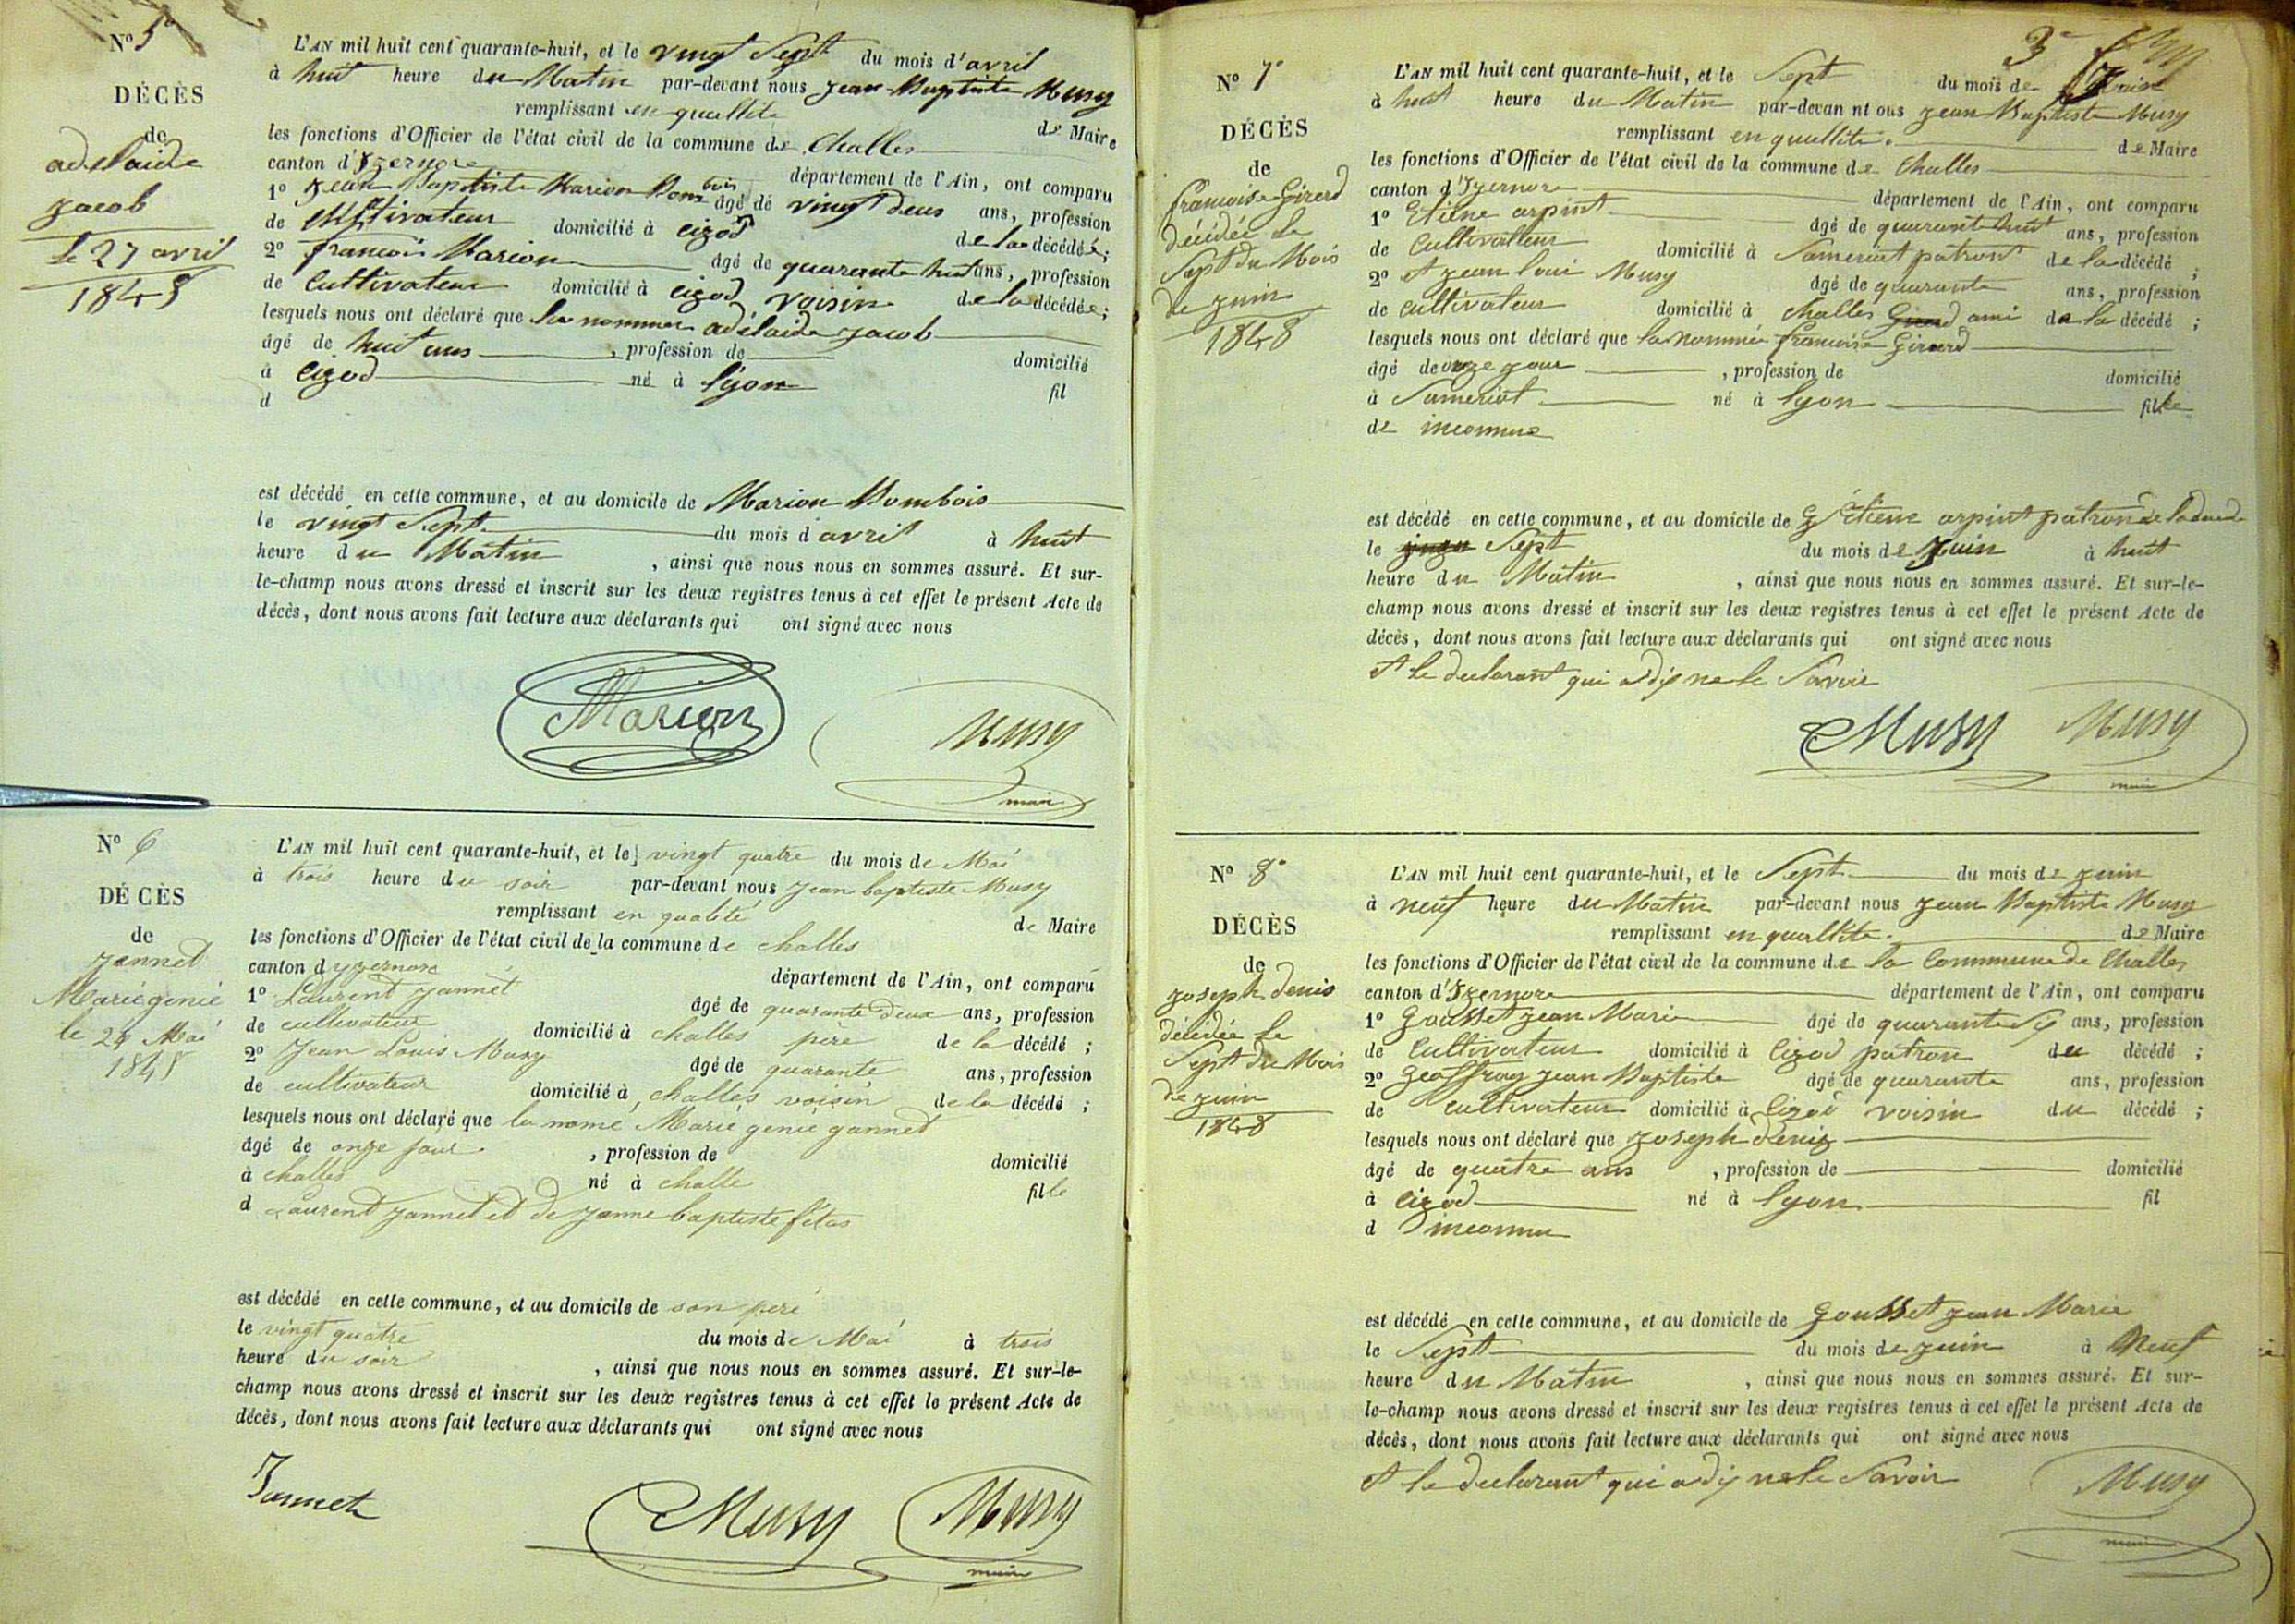 N° 5°
DÉCÈS
de
adelaide
jacob
le 27 avril
1848
L'AN mil huit cent quarante-huit, et le vingt Sept du mois d'avril
à huit heure du Matin par-devant nous jean Baptiste Musy
remplissant en quallité de Maire
les fonctions d'Officier de l'état civil de la commune de Challes
canton d'Izernore département de l'Ain, ont comparu
1° jean Baptiste Marion Bombois âgé de vingt deus ans, profession
de Cultivateur domicilié à cizod de la décédée;
2° francois Marion âgé de quarante huit ans, profession
de Cultivateur domicilié à cizod voisin de la décédée;
lesquels nous ont déclaré que la nommer adélaide jacob
âgé de huit ans , profession de domicilié
à cizod né à lyon
d fil
est décédé en cette commune, et au domicile de Marion Bombois
le vingt Sept du mois d'avril à huit
heure du Matin , ainsi que nous nous en sommes assuré. Et sur-
le-champ nous avons dressé et inscrit sur les deux registres tenus à cet effet le présent Acte de
décès, dont nous avons fait lecture aux déclarants qui ont signé avec nous
Marion Musy
maire
N° 6
DÉCÈS
de
jannet
Marie genie
le 24 Mai
1848
L'AN mil huit cent quarante-huit, et le vingt quatre du mois de Mai
à trois heure du soir par-devant nous jean baptiste Musy
remplissant en qualité de Maire
les fonctions d'Officier de l'état civil de la commune de challes
canton d yzernore département de l'Ain, ont comparu
1° Laurent jannet âgé de quarante deux ans, profession
de cultivateur domicilié à challes père de la décédé ;
2° Jean Louis Musy âgé de quarante ans, profession
de cultivateur domicilié à challes voisin de la décédé ;
lesquels nous ont déclaré que la nomé Marie genie jannet
âgé de onze jour , profession de domicilié
à challes né à challe fille
d Laurent jannet et de janne baptiste fétas
est décédé en cette commune, et au domicile de son père
le vingt quatre du mois de Mai à trois
heure du soir , ainsi que nous nous en sommes assuré. Et sur-le-
champ nous avons dressé et inscrit sur les deux registres tenus à cet effet le présent Acte de
décès, dont nous avons fait lecture aux déclarants qui ont signé avec nous
Jannet Musy Musy
maire
3e
N° 7°
DÉCÈS
de
francoise Girerd
décédée le
Sept du Mois
de juin
1848
L'AN mil huit cent quarante-huit, et le Sept du mois de juin
à huit heure du Matin par-devan nt ous jean Baptiste Musy
remplissant en quallité. de Maire
les fonctions d'Officier de l'état civil de la commune de Challes
canton d'Izernore département de l'Ain, ont comparu
1° Etiene arpint âgé de quarante huit ans, profession
de Cultivateur domicilié à Samerciat patront de la décédé ;
2° et jean loui Musy âgé de quarante ans, profession
de cultivateur domicilié à challes ami de la décédé ;
lesquels nous ont déclaré que la nommée francoise Girerd
âgé de onze jour , profession de domicilié
à Sameriat né à lyon fille
de inconnue
est décédé en cette commune, et au domicile de Etiene arpint patron de la
le Sept du mois de juin à huit
heure du Matin , ainsi que nous nous en sommes assuré. Et sur-le-
champ nous avons dressé et inscrit sur les deux registres tenus à cet effet le présent Acte de
décès, dont nous avons fait lecture aux déclarants qui ont signé avec nous
et le declarant qui a dis ne le Savoir
Musy Musy
maire
N° 8°
DÉCÈS
de
joseph denis
décédée le
Sept du Mois
de juin
1848
L'AN mil huit cent quarante-huit, et le Sept du mois de juin
à neuf heure du Matin par-devant nous jean Baptiste Musy
remplissant en quallité. de Maire
les fonctions d'Officier de l'état civil de la commune de la Commune de Challes
canton d'Izernore département de l'Ain, ont comparu
1° Gousset jean Marie âgé de quarante Sis ans, profession
de Cultivateur domicilié à Cizod patron du décédé ;
2° Geoffray jean Baptiste âgé de quarante ans, profession
de cultivateur domicilié à Cizod voisin du décédé ;
lesquels nous ont déclaré que joseph denis
âgé de quatre ans , profession de domicilié
à cizod né à lyon fil
d inconnu
est décédé en cette commune, et au domicile de Gousset jean Marie
le Sept du mois de juin à Neuf
heure du Matin , ainsi que nous nous en sommes assuré. Et sur-
le-champ nous avons dressé et inscrit sur les deux registres tenus à cet effet le présent Acte de
décès, dont nous avons fait lecture aux déclarants qui ont signé avec nous
et le declarant qui a dis ne le Savoir
Musy
maire